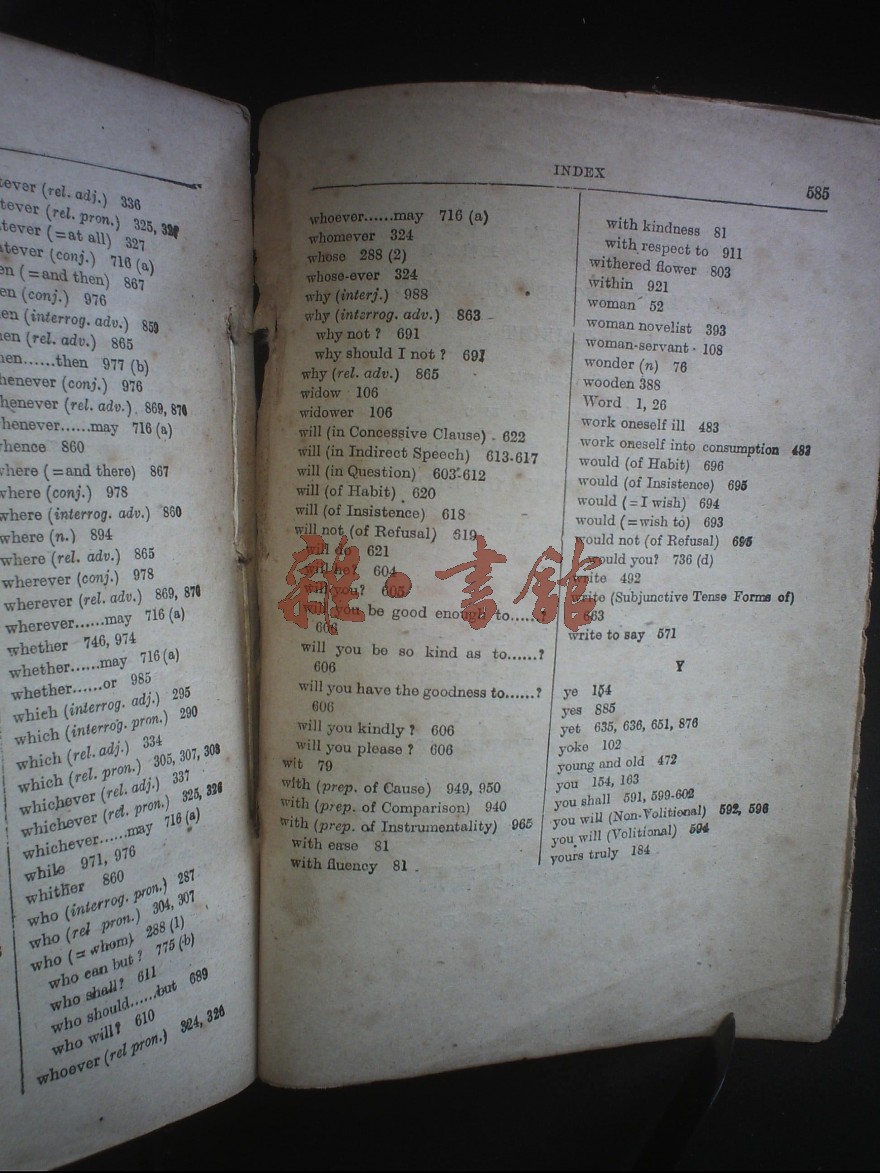 tever (rel. adj.) 336
tever (rel. pron.) 325, 326
tever (=at all) 327
atever (conj.) 716 (a)
en (=and then) 867
en (conj.) 976
en (interrog. adv.) 859
hen (rel. adv.) 865
hen......then 977 (b)
henever (conj.) 976
henever (rel. adv.) 869, 870
henever......may 716 (a)
hence 860
where (=and there) 867
where (conj.) 978
where (interrog. adv.) 860
where (n.) 894
where (rel. adv.) 865
wherever (conj.) 978
wherever (rel. adv.) 869, 870
wherever......may 716 (a)
whether 746, 974
whether......may 716 (a)
whether......or 985
which (interrog. adj.) 295
which (interrog. pron.) 290
which (rel. adj.) 334
which (rel. pron.) 305, 307, 308
whichever (rel. adj.) 337
whichever (rel. pron.) 325, 326
whichever......may 716 (a)
while 971, 976
whither 860
who (interrog. pron.) 287
who (rel pron.) 304, 307
who (=whom) 288 (1)
who can but? 775 (b)
who shall? 611
who should......but 689
who will? 610
whoever (rel pron.) 324, 326
INDEX
585
whoever......may 716 (a)
whomever 324
whose 288 (2)
whose-ever 324
why (interj.) 988
why (interrog. adv.) 863
why not? 691
why should I not? 691
why (rel. adv.) 865
widow 106
widower 106
will (in Concessive Clause) 622
will (in Indirect Speech) 613-617
will (in Question) 603-612
will (of Habit) 620
will (of Insistence) 618
will not (of Refusal) 619
will do 621
will he? 604
will you? 605
will you be good enough to......?
606
will you be so kind as to......?
606
will you have the goodness to......?
606
will you kindly? 606
will you please? 606
wit 79
with (prep. of Cause) 949, 950
with (prep. of Comparison) 940
with (prep. of Instrumentality) 965
with ease 81
with fluency 81
with kindness 81
with respect to 911
withered flower 803
within 921
woman 52
woman novelist 393
woman-servant 108
wonder (n) 76
wooden 388
Word 1, 26
work oneself ill 483
work oneself into consumption 483
would (of Habit) 696
would (of Insistence) 695
would (=I wish) 694
would (=wish to) 693
would not (of Refusal) 695
would you? 736 (d)
write 492
write (Subjunctive Tense Forms of)
663
write to say 571
Y
ye 154
yes 885
yet 635, 636, 651, 876
yoke 102
young and old 472
you 154, 163
you shall 591, 599-602
you will (Non-Volitional) 592, 596
you will (Volitional) 594
yours truly 184
雜·書館